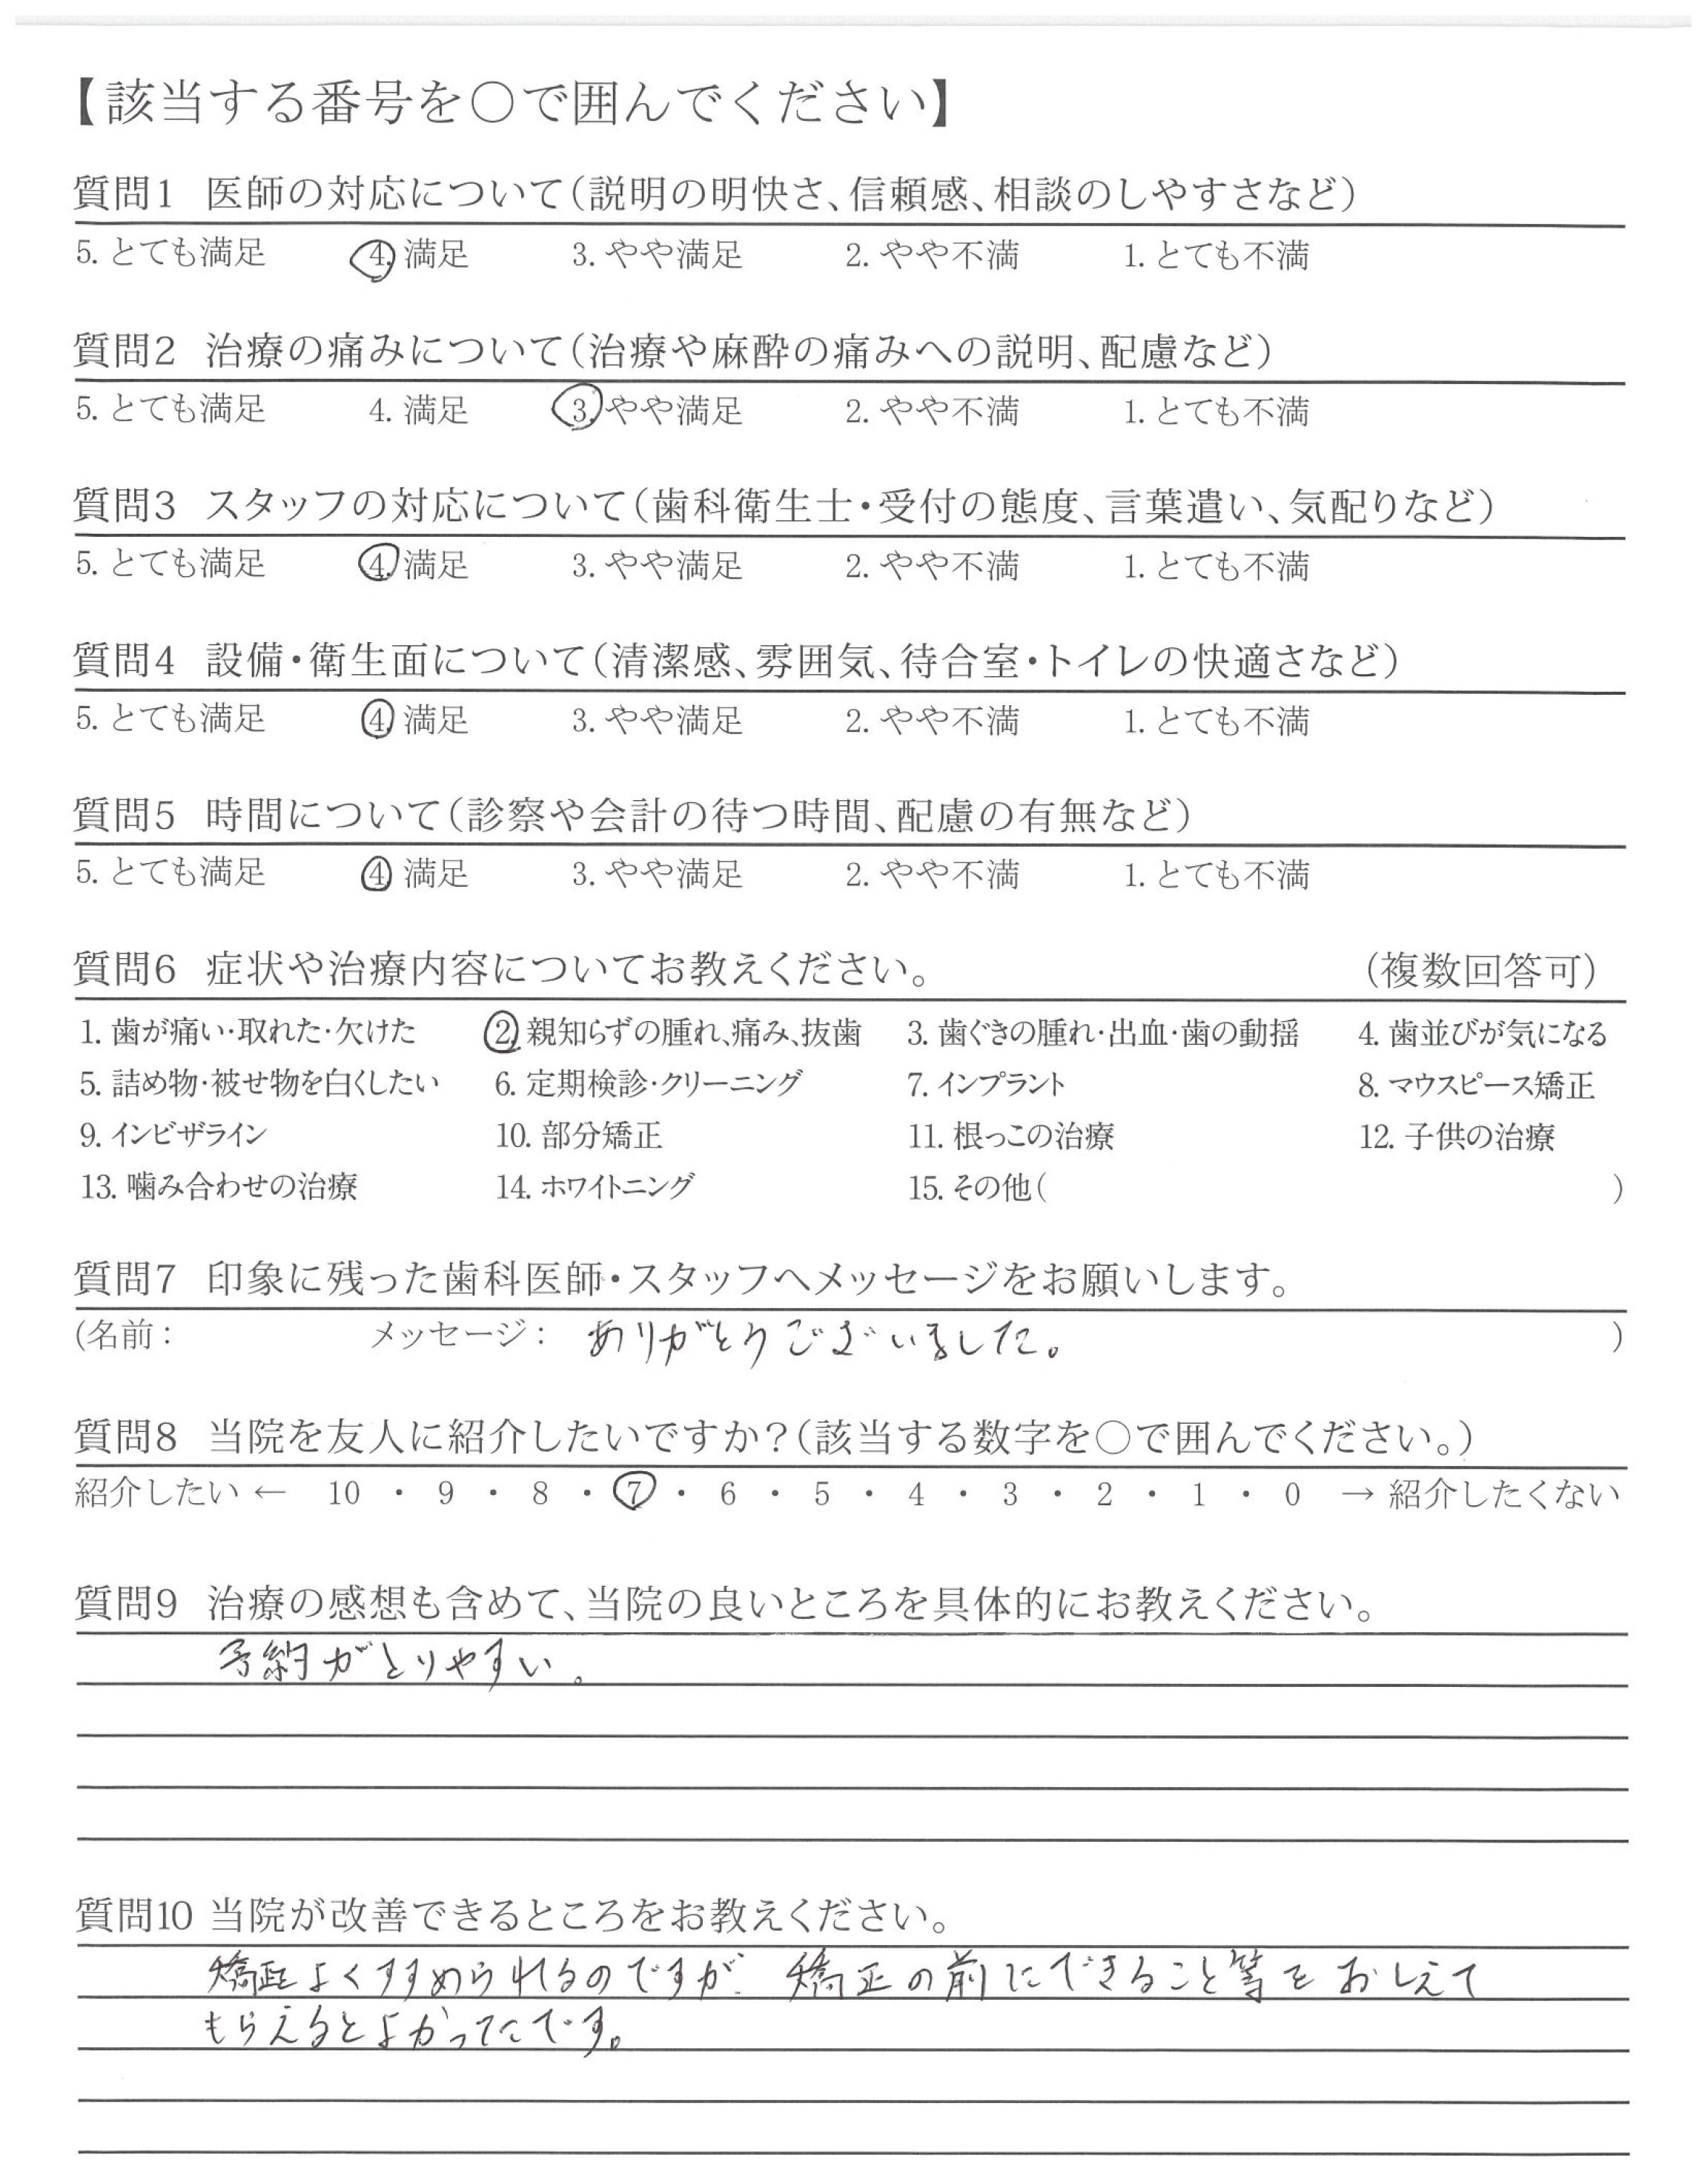 【該当する番号を○で囲んでください】
質問1 医師の対応について(説明の明快さ、信頼感、相談のしやすさなど)
5. とても満足 4. 満足 3. やや満足 2. やや不満 1. とても不満
質問2 治療の痛みについて(治療や麻酔の痛みへの説明、配慮など)
5. とても満足 4. 満足 3. やや満足 2. やや不満 1. とても不満
質問3 スタッフの対応について(歯科衛生士・受付の態度、言葉遣い、気配りなど)
5. とても満足 4. 満足 3. やや満足 2. やや不満 1. とても不満
質問4 設備・衛生面について(清潔感、雰囲気、待合室・トイレの快適さなど)
5. とても満足 4. 満足 3. やや満足 2. やや不満 1. とても不満
質問5 時間について(診察や会計の待つ時間、配慮の有無など)
5. とても満足 4. 満足 3. やや満足 2. やや不満 1. とても不満
質問6 症状や治療内容についてお教えください。 (複数回答可)
1. 歯が痛い・取れた・欠けた 2. 親知らずの腫れ、痛み、抜歯 3. 歯ぐきの腫れ・出血・歯の動揺 4. 歯並びが気になる
5. 詰め物・被せ物を白くしたい 6. 定期検診・クリーニング 7. インプラント 8. マウスピース矯正
9. インビザライン 10. 部分矯正 11. 根っこの治療 12. 子供の治療
13. 噛み合わせの治療 14. ホワイトニング 15. その他( )
質問7 印象に残った歯科医師・スタッフへメッセージをお願いします。
(名前: メッセージ: ありがとうございました。 )
質問8 当院を友人に紹介したいですか?(該当する数字を○で囲んでください。)
紹介したい ← 10 ・ 9 ・ 8 ・ 7 ・ 6 ・ 5 ・ 4 ・ 3 ・ 2 ・ 1 ・ 0 → 紹介したくない
質問9 治療の感想も含めて、当院の良いところを具体的にお教えください。
予約がとりやすい。
質問10 当院が改善できるところをお教えください。
矯正よくすすめられるのですが、矯正の前にできること等をおしえて
もらえるとよかったです。